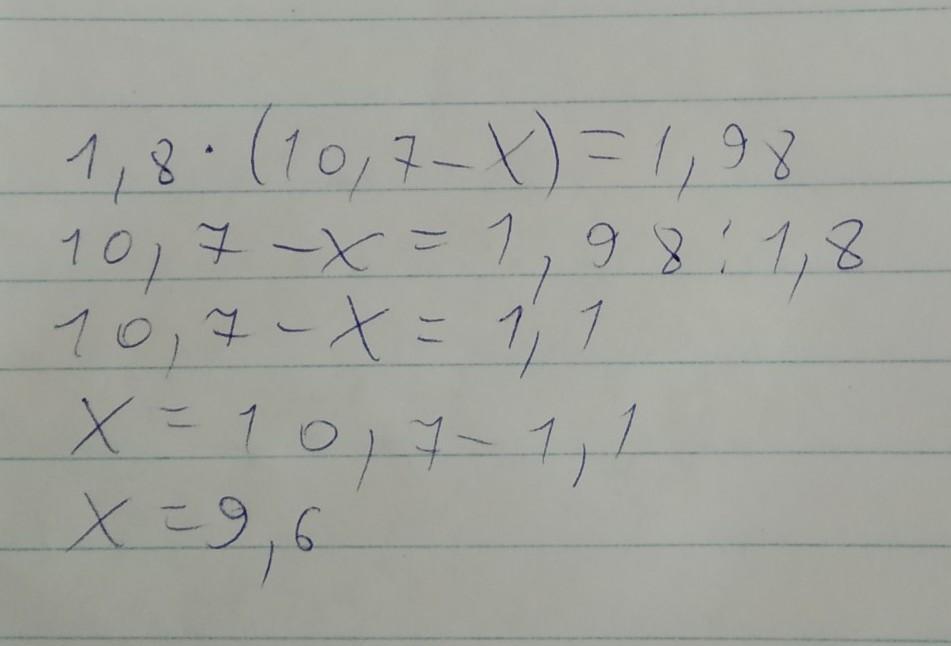 1,8·(10,7-x)=1,98
10,7-x=1,98:1,8
10,7-x=1,1
x=10,7-1,1
x=9,6